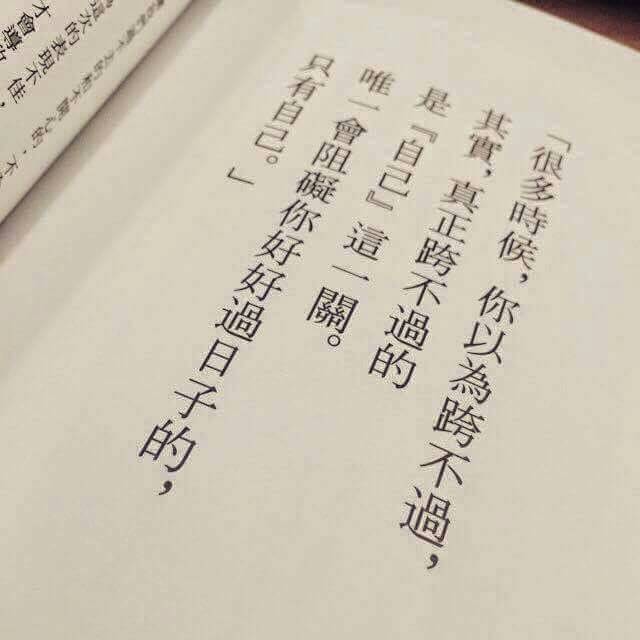 「很多時候，你以為跨不過，
其實，真正跨不過的
是『自己』這一關。
唯一會阻礙你好好過日子的，
只有自己。」